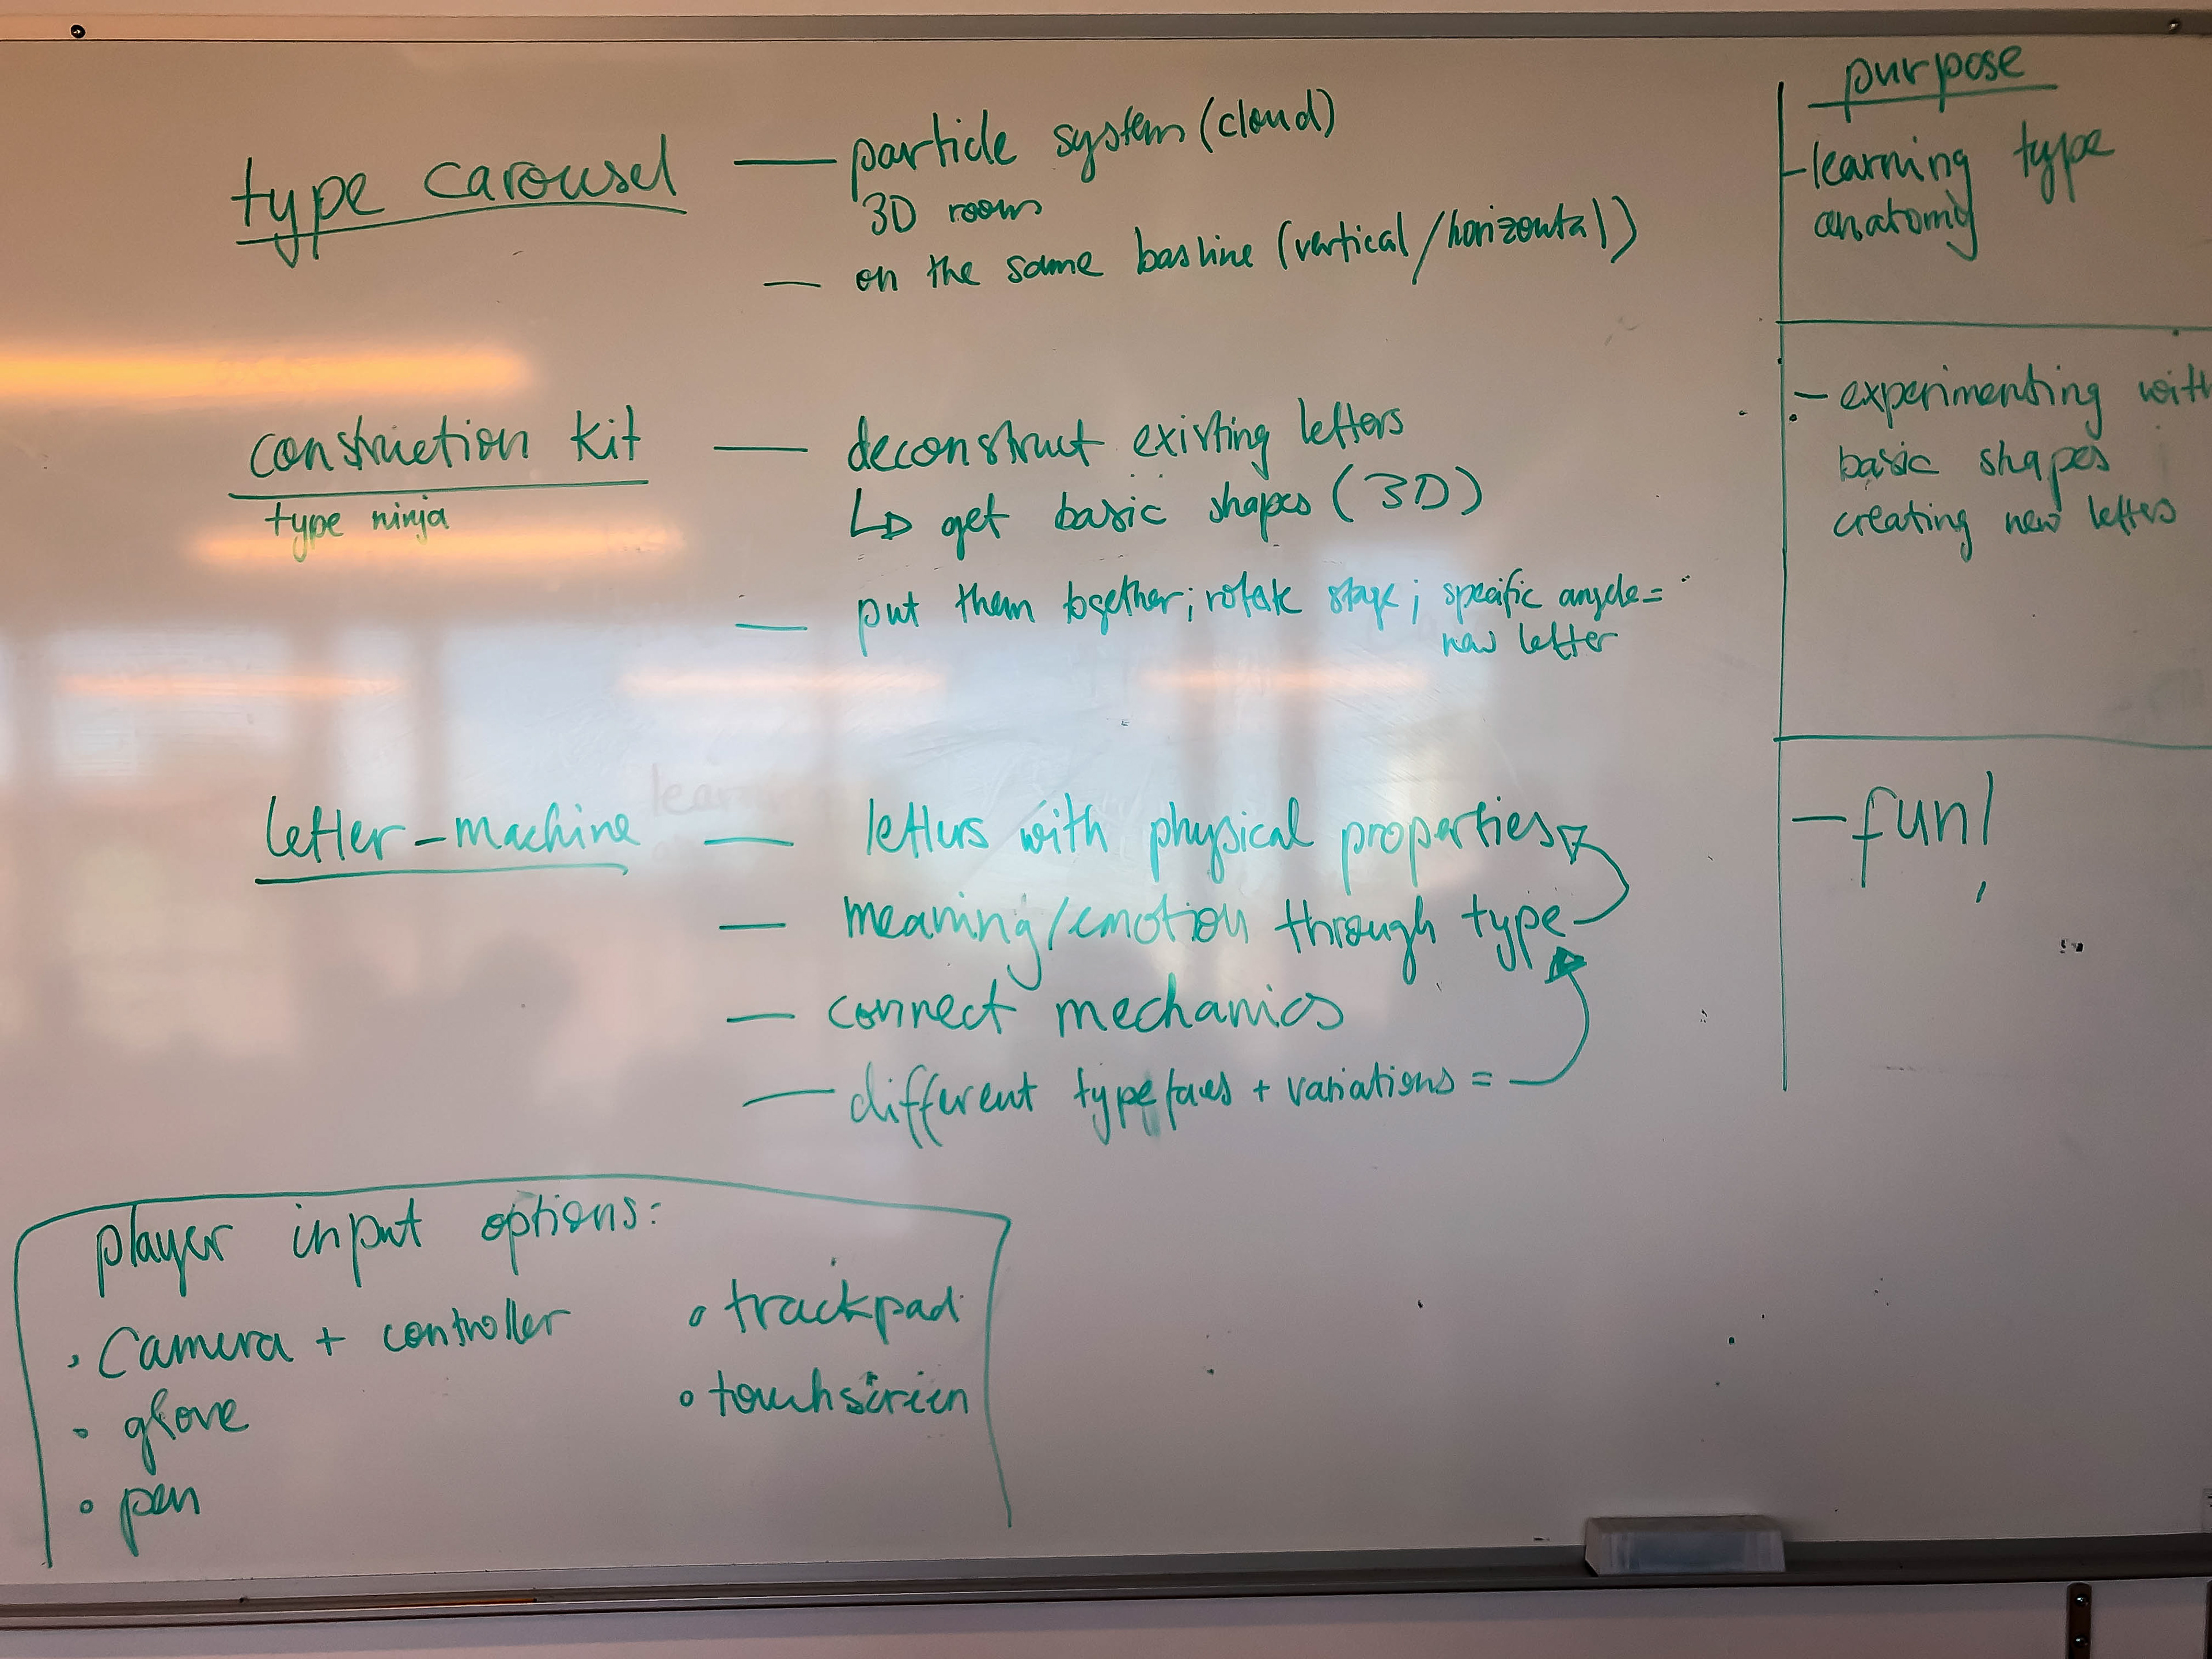 type carousel — particle system (cloud)
3D room
— on the same basline (vertical/horizontal)
construction kit — deconstruct existing letters
type ninja
↳ get basic shapes (3D)
— put them together; rotate stage; specific angle =
new letter
letter-machine — letters with physical properties
— meaning/emotion through type
— connect mechanics
— different typefaces + variations =
purpose
- learning type
anatomy
- experimenting with
basic shapes
creating new letters
- fun!
player input options:
• camera + controller
• glove
• pen
• trackpad
• touchscreen